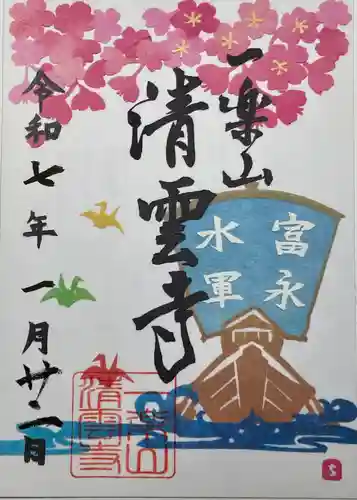 一楽山
清雲寺
富永
水軍
令和七年一月廿二日
一楽山
清雲寺